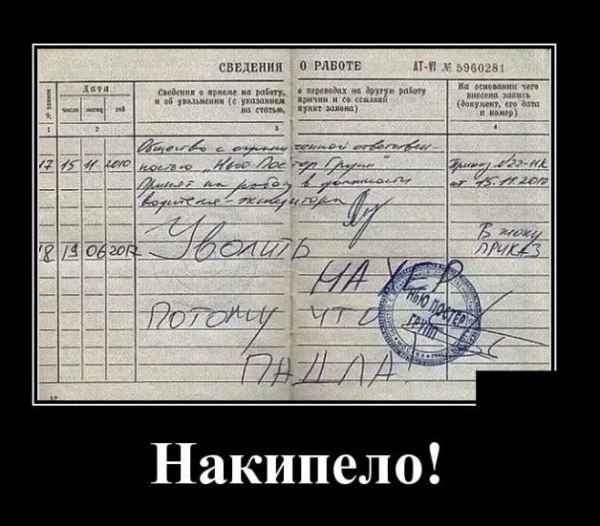 СВЕДЕНИЯ О РАБОТЕ
АТ-VI № 5960281
№ записи
Дата
число месяц год
Сведения о приеме на работу, о переводах на другую работу
и об увольнении (с указанием причин и со ссылкой
на статью, пункт закона)
На основании чего
внесена запись
(документ, его дата
и номер)
1 2 3 4
Общество с ограниченной ответствен-
17 15 11 2010 ностью „Нью Постер Групп"
Приказ №22-НК
от 15.11.2010
Принят на работу в должности
водителя-экспедитора
18 19 06 201
Уволить
В жопу
ПРИКАЗ
НАХЕР
ПОТОМУ ЧТО
ПАДЛА!
НЬЮ ПОСТЕР
ГРУПП
Накипело!